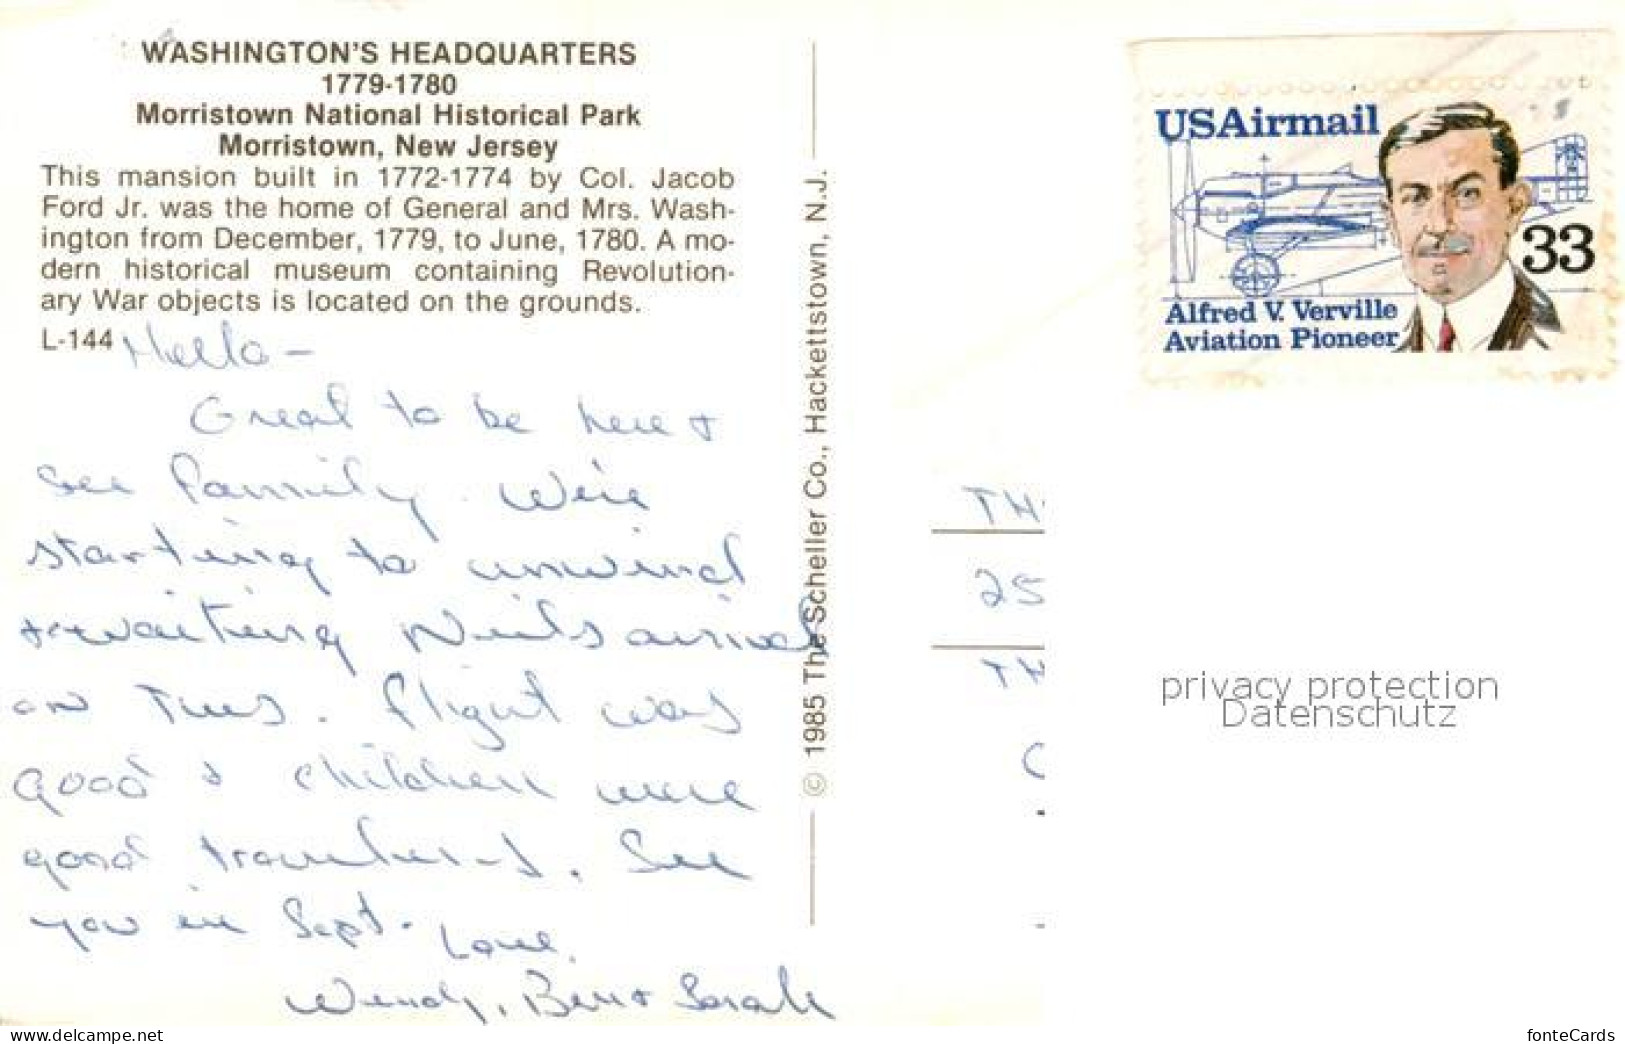 WASHINGTON'S HEADQUARTERS
1779-1780
Morristown National Historical Park
Morristown, New Jersey
This mansion built in 1772-1774 by Col. Jacob
Ford Jr. was the home of General and Mrs. Wash-
ington from December, 1779, to June, 1780. A mo-
dern historical museum containing Revolution-
ary War objects is located on the grounds.
L-144
Hello -
Great to be here +
see family. We're
starting to unwind
+ waiting Niels arrival
on Tues. Flight was
good & children were
good travelers. See
you in Sept. Love,
Wendy, Ben + Sarah
© 1985 The Scheller Co., Hackettstown, N.J.
USAirmail
33
Alfred V. Verville
Aviation Pioneer
TH
25
TH
C
privacy protection
Datenschutz
www.delcampe.net
fonteCards